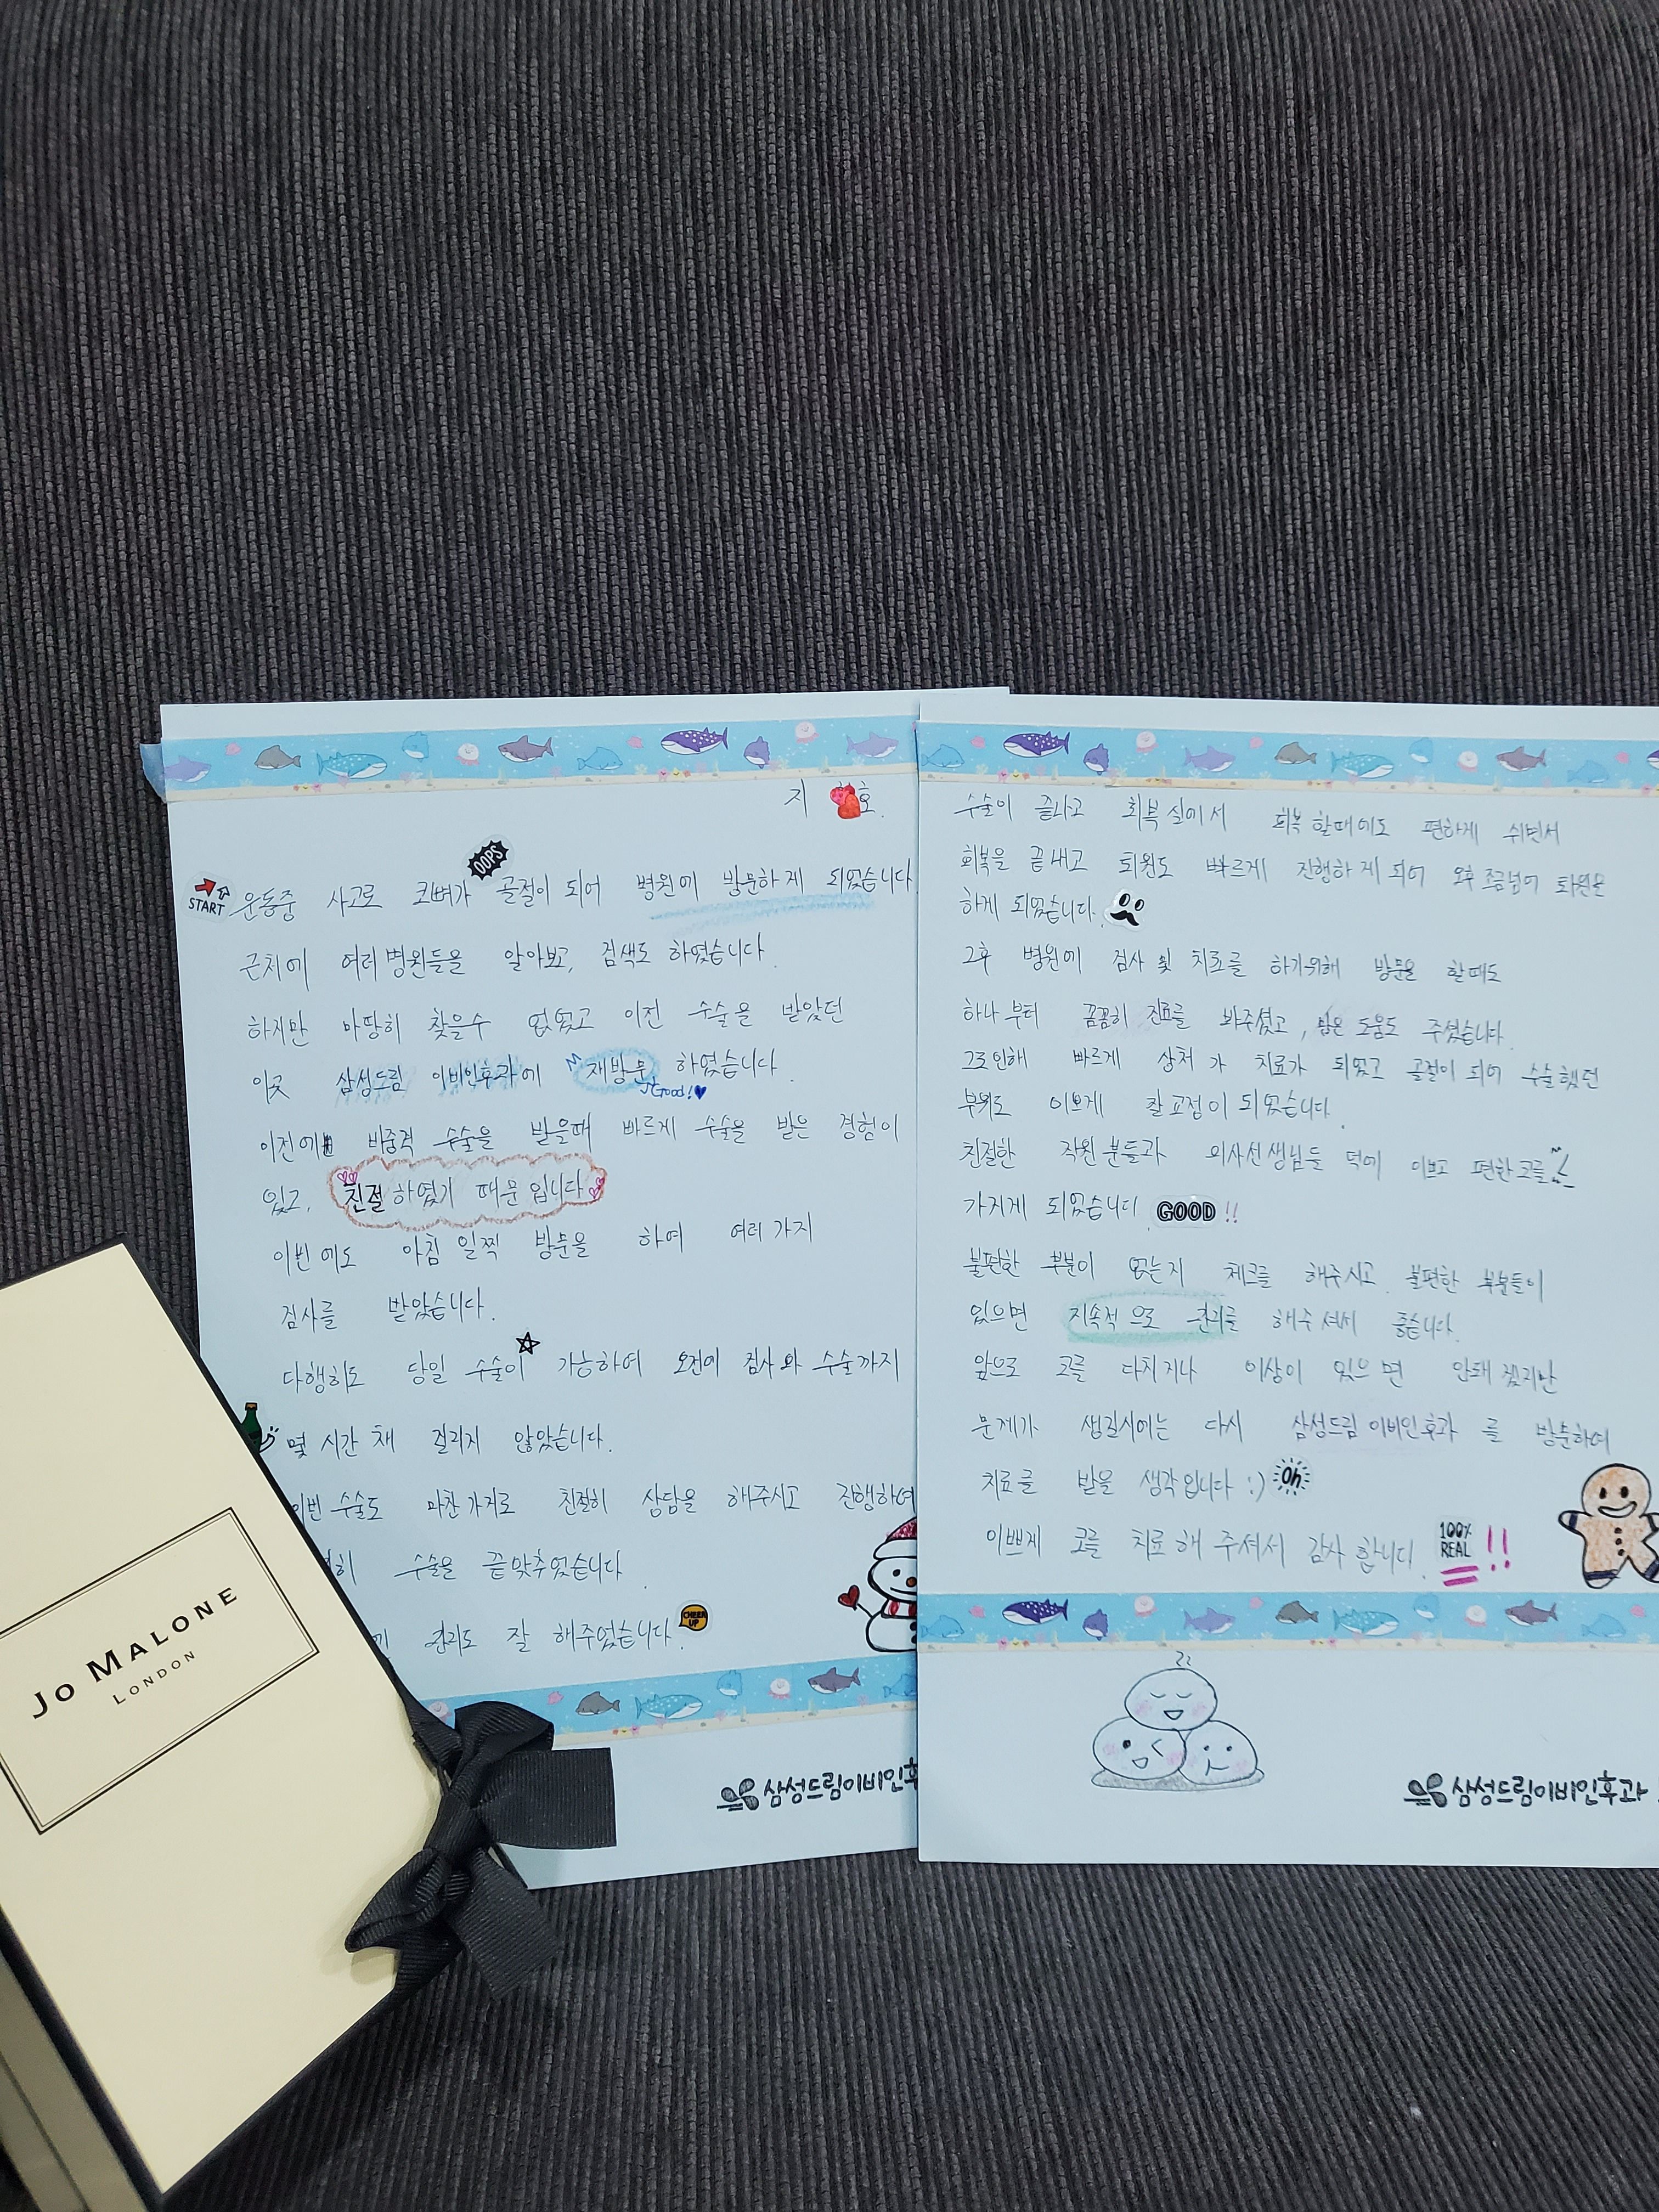 지 호.
OOPS
START 운동중 사고로 코뼈가 골절이 되어 병원에 방문하게 되었습니다
근처에 여러 병원들을 알아보고, 검색도 하였습니다.
하지만 마땅히 찾을수 없었고 이전 수술을 받았던
이곳 삼성드림 이비인후과에 재방문 하였습니다.
Good!
이전에 비중격 수술을 받을때 빠르게 수술을 받은 경험이
있고, 친절하였기 때문입니다
이번에도 아침 일찍 방문을 하여 여러가지
검사를 받았습니다.
다행히도 당일 수술이 가능하여 오전에 검사와 수술까지
몇 시간 채 걸리지 않았습니다.
이번 수술도 마찬가지로 친절히 상담을 해주시고 진행하여
히 수술을 끝맞추었습니다.
관리도 잘 해주었습니다.
CHEER UP
삼성드림이비인후
수술이 끝나고 회복실에서 회복할때에도 편하게 쉬면서
회복을 끝내고 퇴원도 빠르게 진행하게 되어 오후 조금넘어 퇴원을
하게 되었습니다.
그후 병원에 검사 및 치료를 하기위해 방문을 할때도
하나부터 꼼꼼히 진료를 봐주셨고, 많은 도움도 주셨습니다.
그로인해 빠르게 상처가 치료가 되었고 골절이 되어 수술했던
부위도 이쁘게 잘 교정이 되었습니다.
친절한 직원분들과 의사선생님들 덕에 이쁘고 편한 코를
가지게 되었습니다. GOOD!!
불편한 부분이 없는지 체크를 해주시고 불편한 부분들이
있으면 지속적으로 관리를 해주셔서 좋습니다.
앞으로 코를 다치거나 이상이 있으면 안돼겠지만
문제가 생길시에는 다시 삼성드림이비인후과를 방문하여
치료를 받을 생각입니다 :) Oh
이쁘게 코를 치료해 주셔서 감사합니다. 100% REAL !!
zz
삼성드림이비인후과
JO MALONE
LONDON